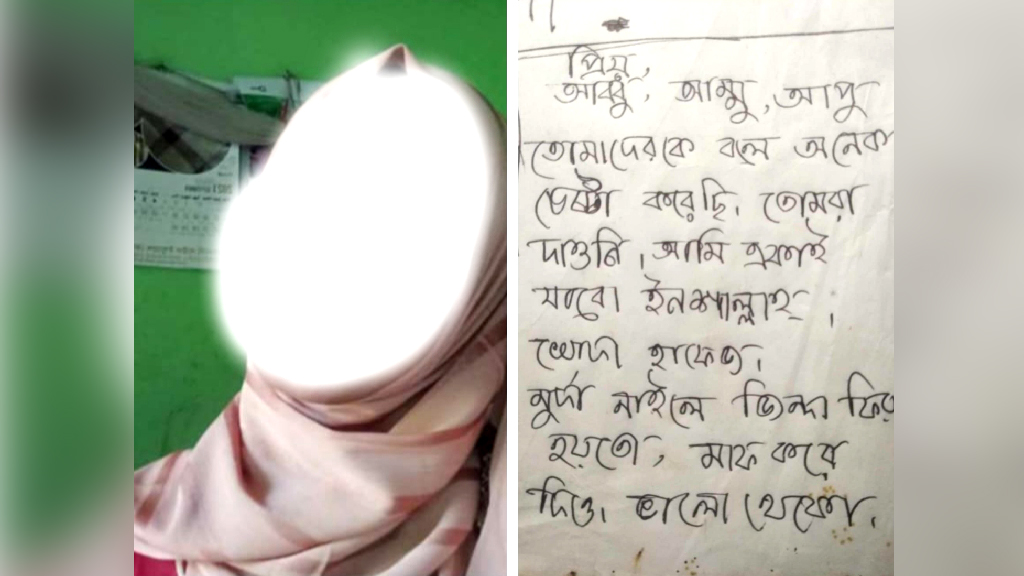 প্রিয়,
আব্বু, আম্মু, আপু
তোমাদেরকে বলে অনেক
চেষ্টা করেছি। তোমরা
দাওনি। আমি একাই
যাবো ইনশাল্লাহ্।
খোদা হাফেজ।
মুর্দা নাইলে জিন্দা
হয়তো, মাফ করে
দিও। ভালো থেকো।